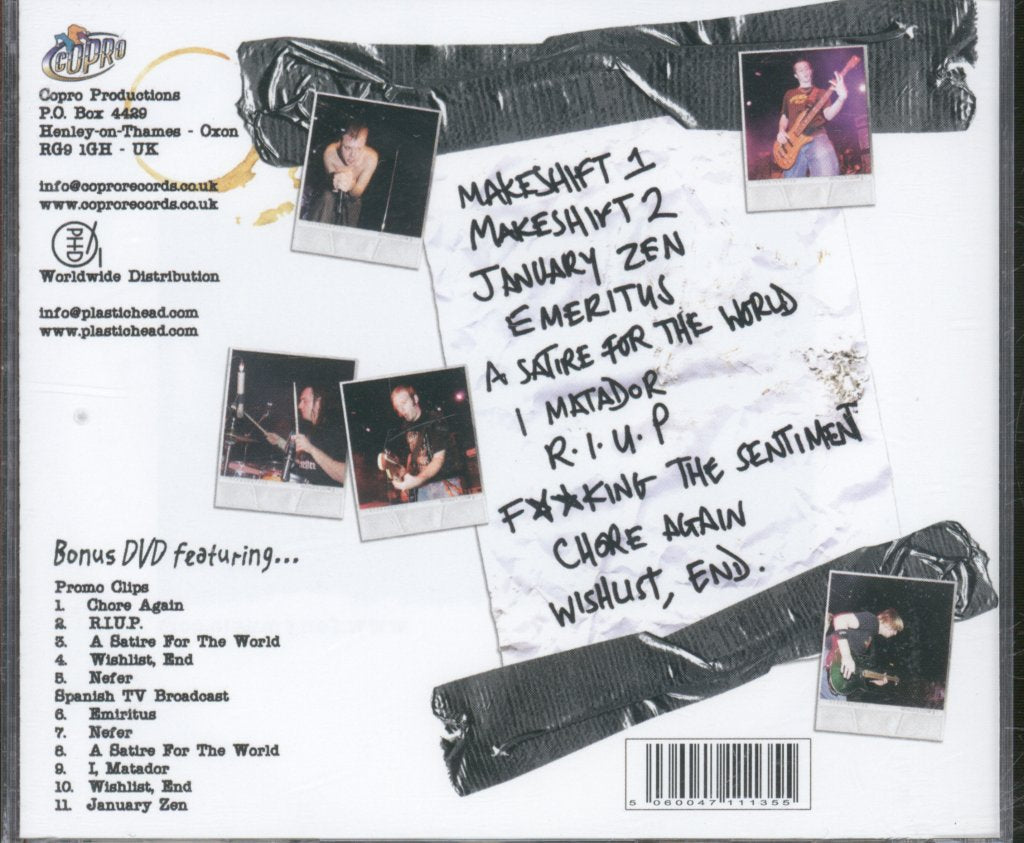 COPRO
Copro Productions
P.O. Box 4429
Henley-on-Thames - Oxon
RG9 1GH - UK
info@coprorecords.co.uk
www.coprorecords.co.uk
PHD
Worldwide Distribution
info@plastichead.com
www.plastichead.com
MAKESHIFT 1
MAKESHIFT 2
JANUARY ZEN
EMERITUS
A SATIRE FOR THE WORLD
I MATADOR
R.I.U.P
F**KING THE SENTIMENT
CHORE AGAIN
WISHLIST, END.
Bonus DVD featuring...
Promo Clips
1. Chore Again
2. R.I.U.P.
3. A Satire For The World
4. Wishlist, End
5. Nefer
Spanish TV Broadcast
6. Emiritus
7. Nefer
8. A Satire For The World
9. I, Matador
10. Wishlist, End
11. January Zen
5 060047 111355